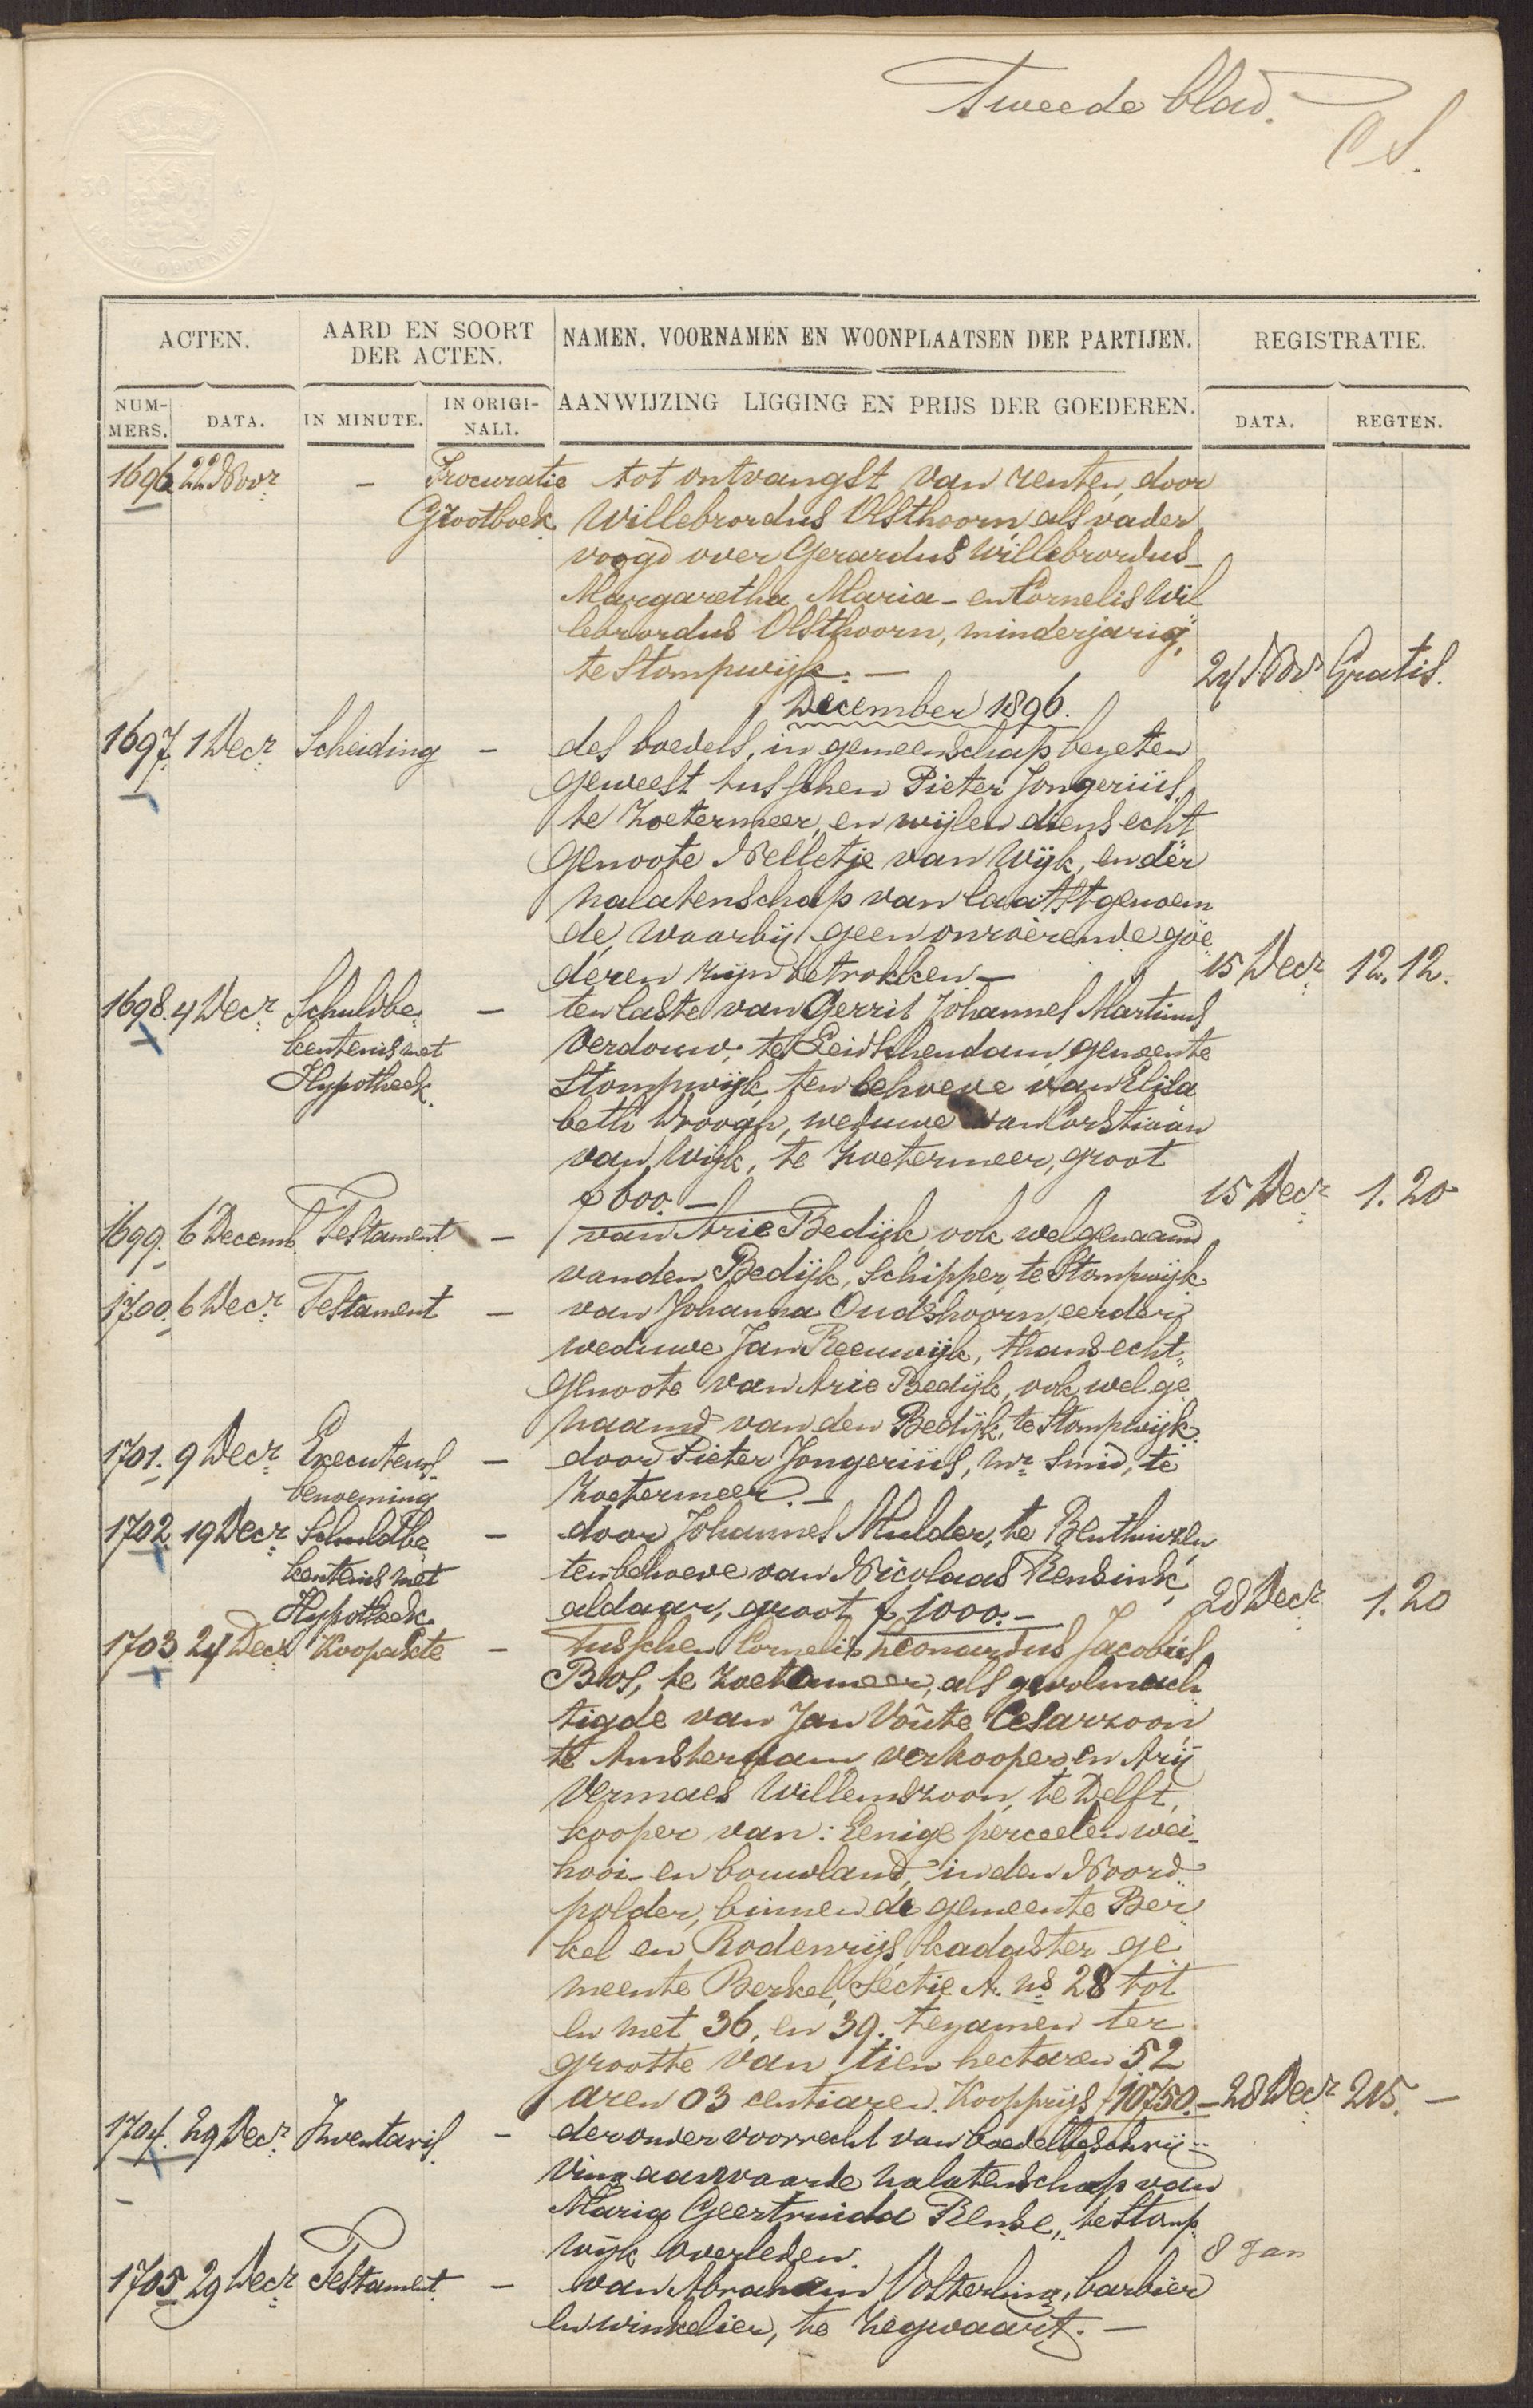 Tweede blad.
ACTEN.
AARD EN SOORT
DER ACTEN.
NAMEN, VOORNAMEN EN WOONPLAATSEN DER PARTIJEN.
REGISTRATIE.
NUM-
MERS.
DATA.
IN MINUTE.
IN ORIGI-
NALI.
AANWIJZING LIGGING EN PRIJS DER GOEDEREN.
DATA.
REGTEN.
1696 22 Novr - Procuratie tot ontvangst van renten, door
Grootboek Willebrordus Olsthoorn, als vader
voogd over Gerardus Willebrordus-
Margaretha Maria- en Cornelis Wil
lebrordus Olsthoorn, minderjarig,
te Stompwijk. - 24 Novr Gratis.
December 1896.
1697. 1 Decr Scheiding - des boedels, in gemeenschap bezeten
geweest tusschen Pieter Jongeriüs,
te Zoetermeer, en wijlen diens echt
genoote Nelletje van Wijk, en der
nalatenschap van laatstgenoem
de, waarbij geen onroerende goe
deren zijn betrokken - 15 Decr 12.12.
1698. 4 Decr Schuldbe - ten laste van Gerrit Johannes Martinus
kentenis met Verdouw, te Leidschendam, gemeente
Hypotheek. Stompwijk, ten behoeve van Elisa
beth Droogh, weduwe van Corstiaan
van Wijk, te Zoetermeer, groot
f 600.- 15 Decr 1.20
1699. 6 Decemb. Testament - van Arie Bedijk, ook wel genaamd
van den Bedijk, Schipper, te Stompwijk
1700. 6 Decr Testament - van Johanna Oudshoorn, eerder
weduwe Jan Reeuwijk, thans echt
genoote van Arie Bedijk, ook wel ge
naamd van den Bedijk, te Stompwijk.
1701. 9 Decr Executeurs- - door Pieter Jongeriüs, mr Smid, te
benoeming Zoetermeer. -
1702 19 Decr Schuldbe - door Johannes Mulder, te Benthuizen,
kentenis met ten behoeve van Nicolaas Rensink,
Hypotheek. aldaar, groot f 1000.- 28 Decr 1.20
1703 24 Decr Koopakte - Tusschen Cornelis Leonardus Jacobus
Bos, te Zoetermeer, als gevolmach
tigde van Jan Voûte Cesarzoon,
te Amsterdam, verkooper en Arij
Vermaes Willemszoon, te Delft,
kooper van: Eenige perceelen wei-
hooi- en bouwland, in den Noord
polder, binnen de gemeente Ber
kel en Rodenrijs, kadaster ge
meente Berkel, Sectie A. ns 28 tot
en met 36, en 39. tezamen ter
grootte van tien hectaren 52
aren 03 centiaren. Koopprijs f 10750.- 28 Decr 215. -
1704. 29 Decr Inventaris. - der onder voorrecht van boedelbeschrij
ving aanvaarde nalatenschap van
Maria Geertruida Rense, te Stomp
wijk overleden. 8 Jan
1705 29 Decr Testament. - van Abraham Vosterling, barbier
en winkelier, te Zegwaart. -